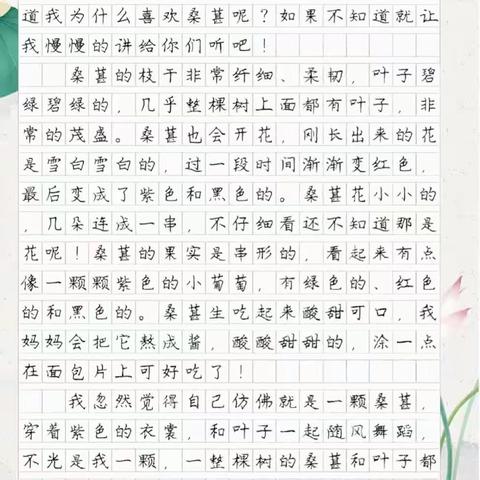 道我为什么喜欢桑葚呢？如果不知道就让
我慢慢的讲给你们听吧！
桑葚的枝干非常纤细、柔韧，叶子碧
绿碧绿的，几乎整棵树上面都有叶子，非
常的茂盛。桑葚也会开花，刚长出来的花
是雪白雪白的，过一段时间渐渐变红色，
最后变成了紫色和黑色的。桑葚花小小的
，几朵连成一串，不仔细看还不知道那是
花呢！桑葚的果实是串形的，看起来有点
像一颗颗紫色的小葡萄，有绿色的、红色
的和黑色的。桑葚生吃起来酸甜可口，我
妈妈会把它熬成酱，酸酸甜甜的，涂一点
在面包片上可好吃了！
我忽然觉得自己仿佛就是一颗桑葚，
穿着紫色的衣裳，和叶子一起随风舞蹈，
不光是我一颗，一整棵树的桑葚和叶子都